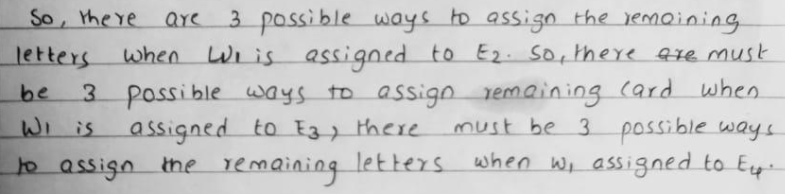 So, there are 3 possible ways to assign the remaining
letters when W₁ is assigned to E₂. So, there are must
be 3 possible ways to assign remaining card when
W₁ is assigned to E₃, there must be 3 possible ways
to assign the remaining letters when w₁ assigned to E₄.